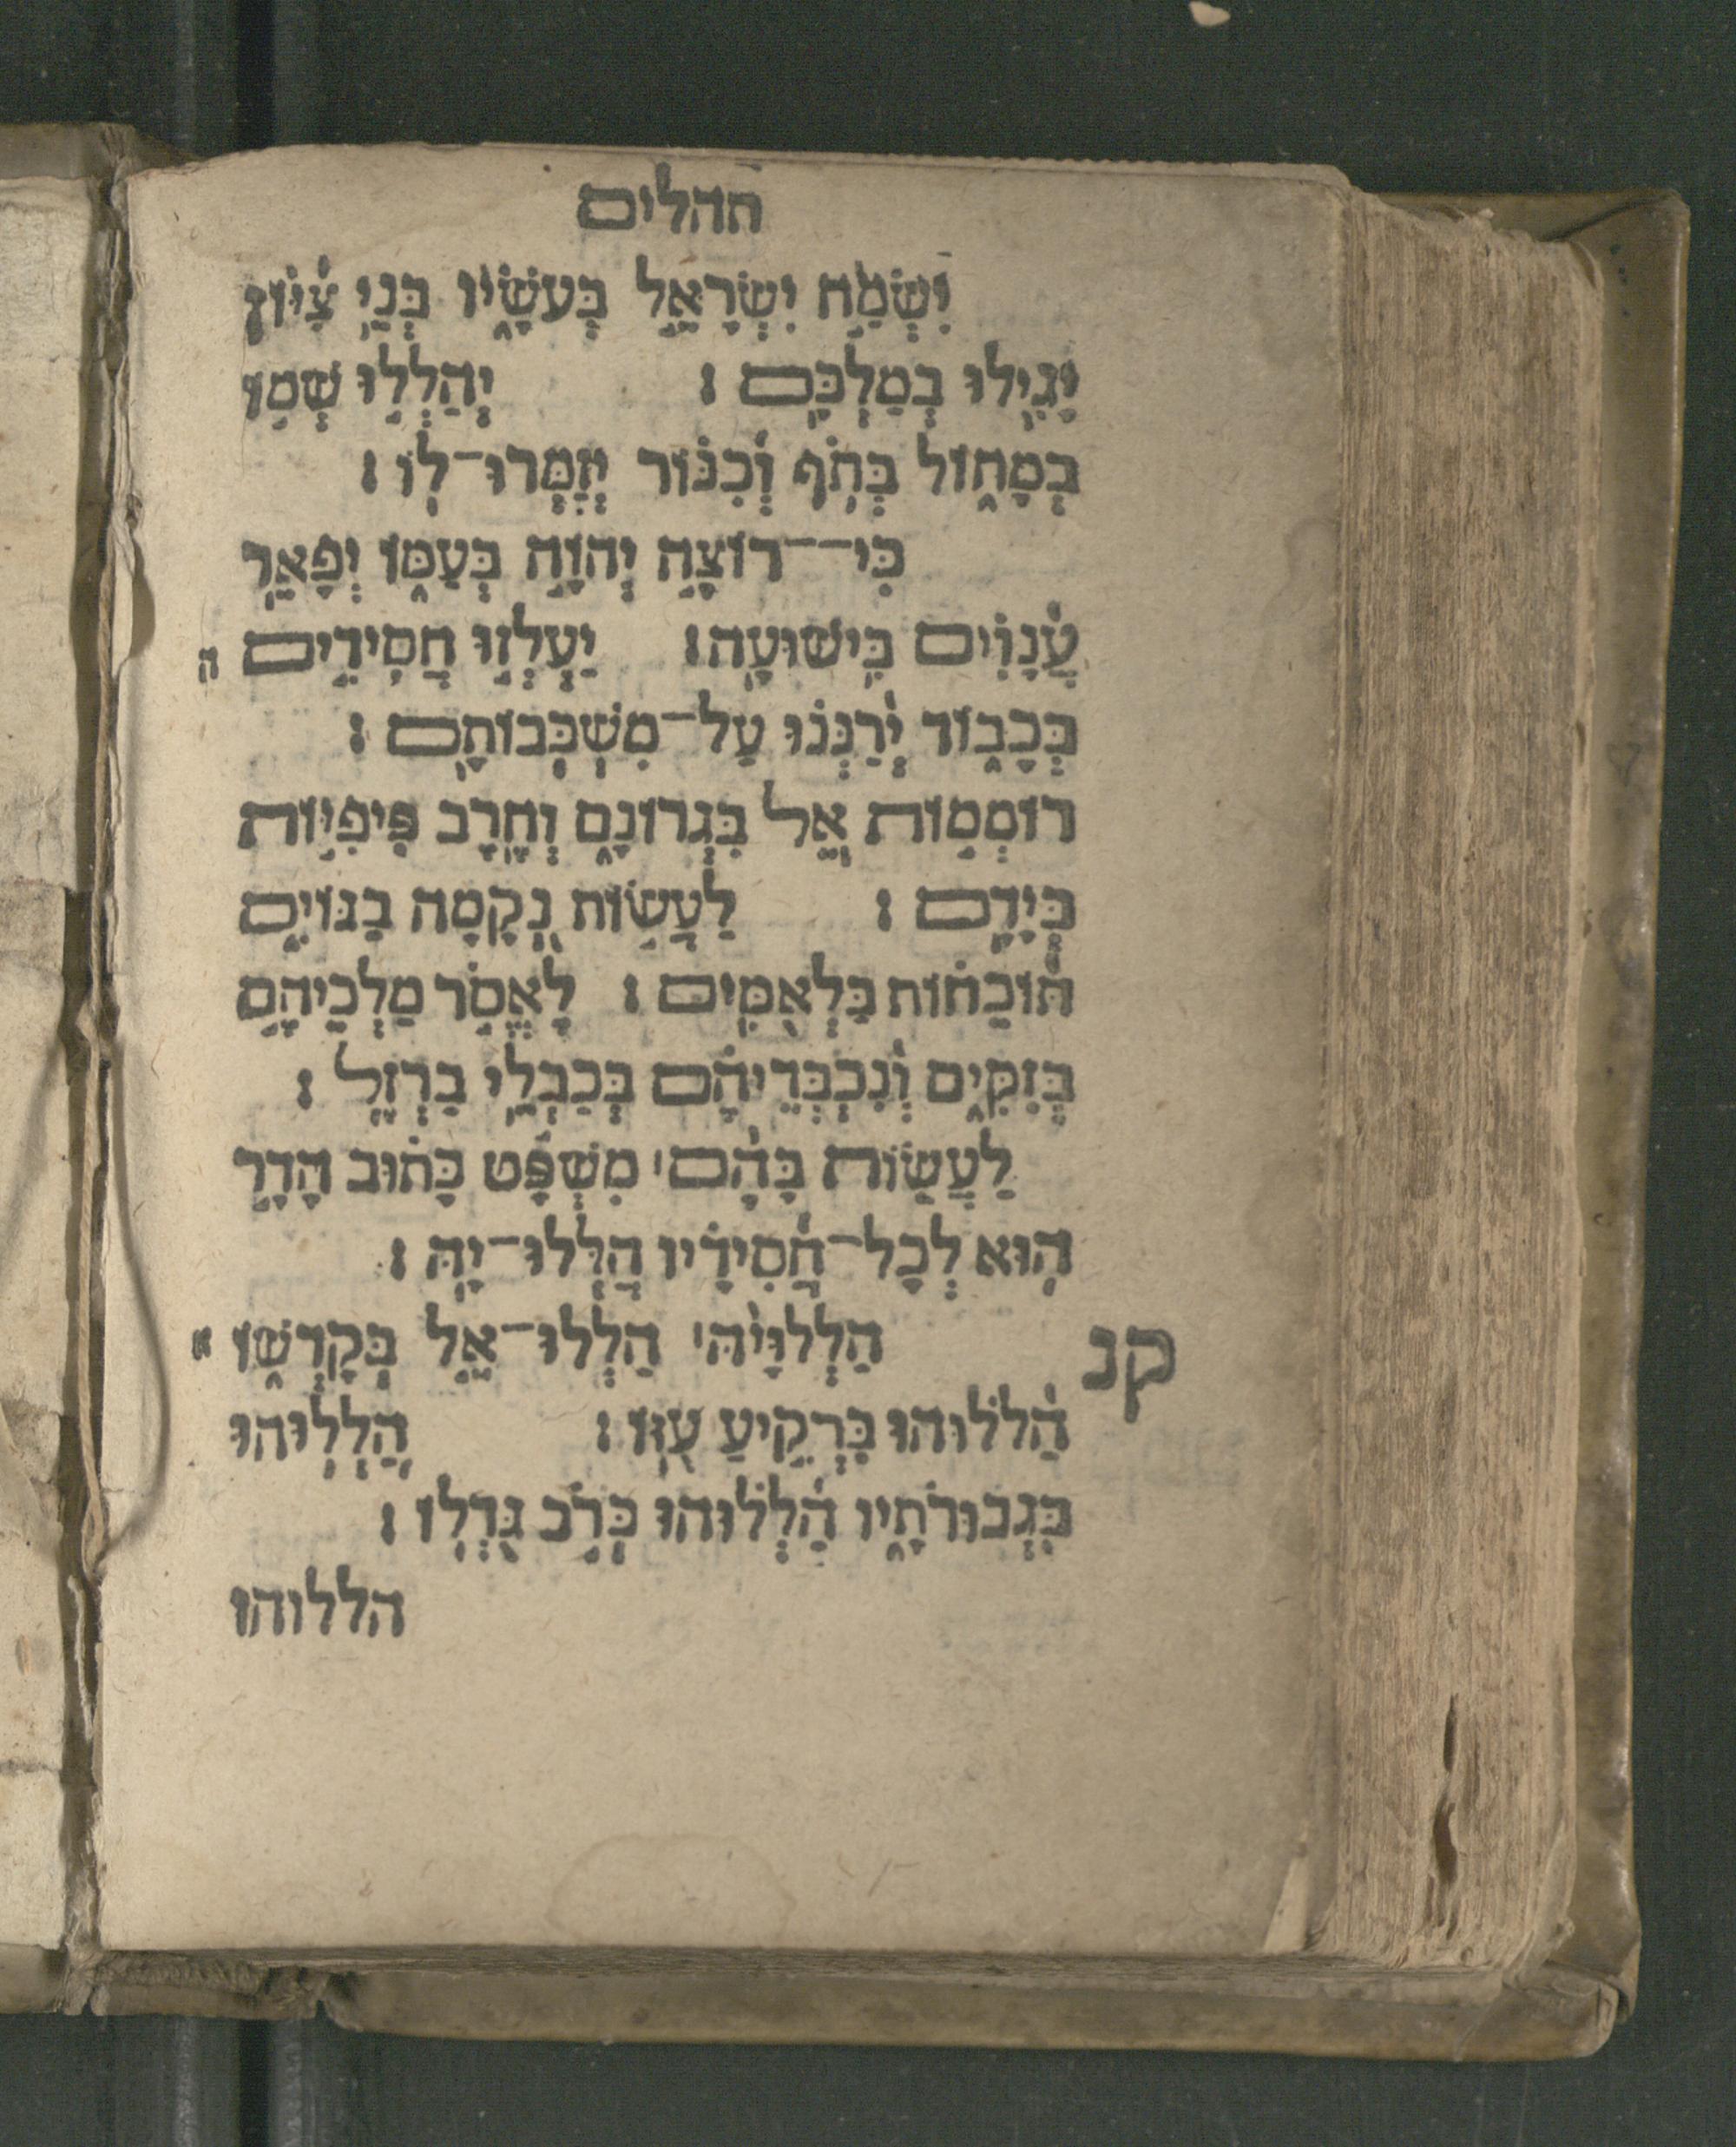 תהלים
יִשְׂמַ֣ח יִשְׂרָאֵ֣ל בְּעֹשָׂ֑יו בְּנֵֽי צִ֝יּ֗וֹן
יָגִ֥ילוּ בְמַלְכָּֽם׃ יְהַלְל֣וּ שְׁמ֣וֹ
בְמָח֑וֹל בְּתֹ֥ף וְ֝כִנּ֗וֹר יְזַמְּרוּ־לֽוֹ׃
כִּי־־רוֹצֶ֣ה יְהוָ֣ה בְּעַמּ֑וֹ יְפָאֵ֥ר
עֲ֝נָוִ֗ים בִּישׁוּעָֽה׃ יַעְלְז֣וּ חֲסִידִ֣ים ה
בְּכָב֑וֹד יְ֝רַנְּנ֗וּ עַל־מִשְׁכְּבוֹתָֽם׃
רוֹמְמ֣וֹת אֵ֭ל בִּגְרוֹנָ֑ם וְחֶ֖רֶב פִּֽיפִיּ֣וֹת
בְּיָדָֽם׃ לַעֲשׂ֣וֹת נְ֭קָמָה בַּגּוֹיִ֑ם
תּ֝וֹכֵח֗וֹת בַּלְאֻמִּֽים׃ לֶאְסֹ֣ר מַלְכֵיהֶ֣ם
בְּזִקִּ֑ים וְ֝נִכְבְּדֵיהֶ֗ם בְּכַבְלֵ֥י בַרְזֶֽל׃
לַעֲשׂ֤וֹת בָּהֶ֨ם׀ מִשְׁפָּ֬ט כָּת֗וּב הָדָ֣ר
ה֭וּא לְכָל־חֲ֝סִידָ֗יו הַֽלְלוּ־יָֽהּ׃
קנ הַ֥לְלוּיָ֨הּ׀ הַֽלְלוּ־אֵ֥ל בְּקָדְשׁ֑וֹ א
הַֽ֝לְל֗וּהוּ בִּרְקִ֥יעַ עֻזּֽוֹ׃ הַֽלְל֥וּהוּ
בִגְבוּרֹתָ֑יו הַֽ֝לְל֗וּהוּ כְּרֹ֣ב גֻּדְלֽוֹ׃
הללוהו